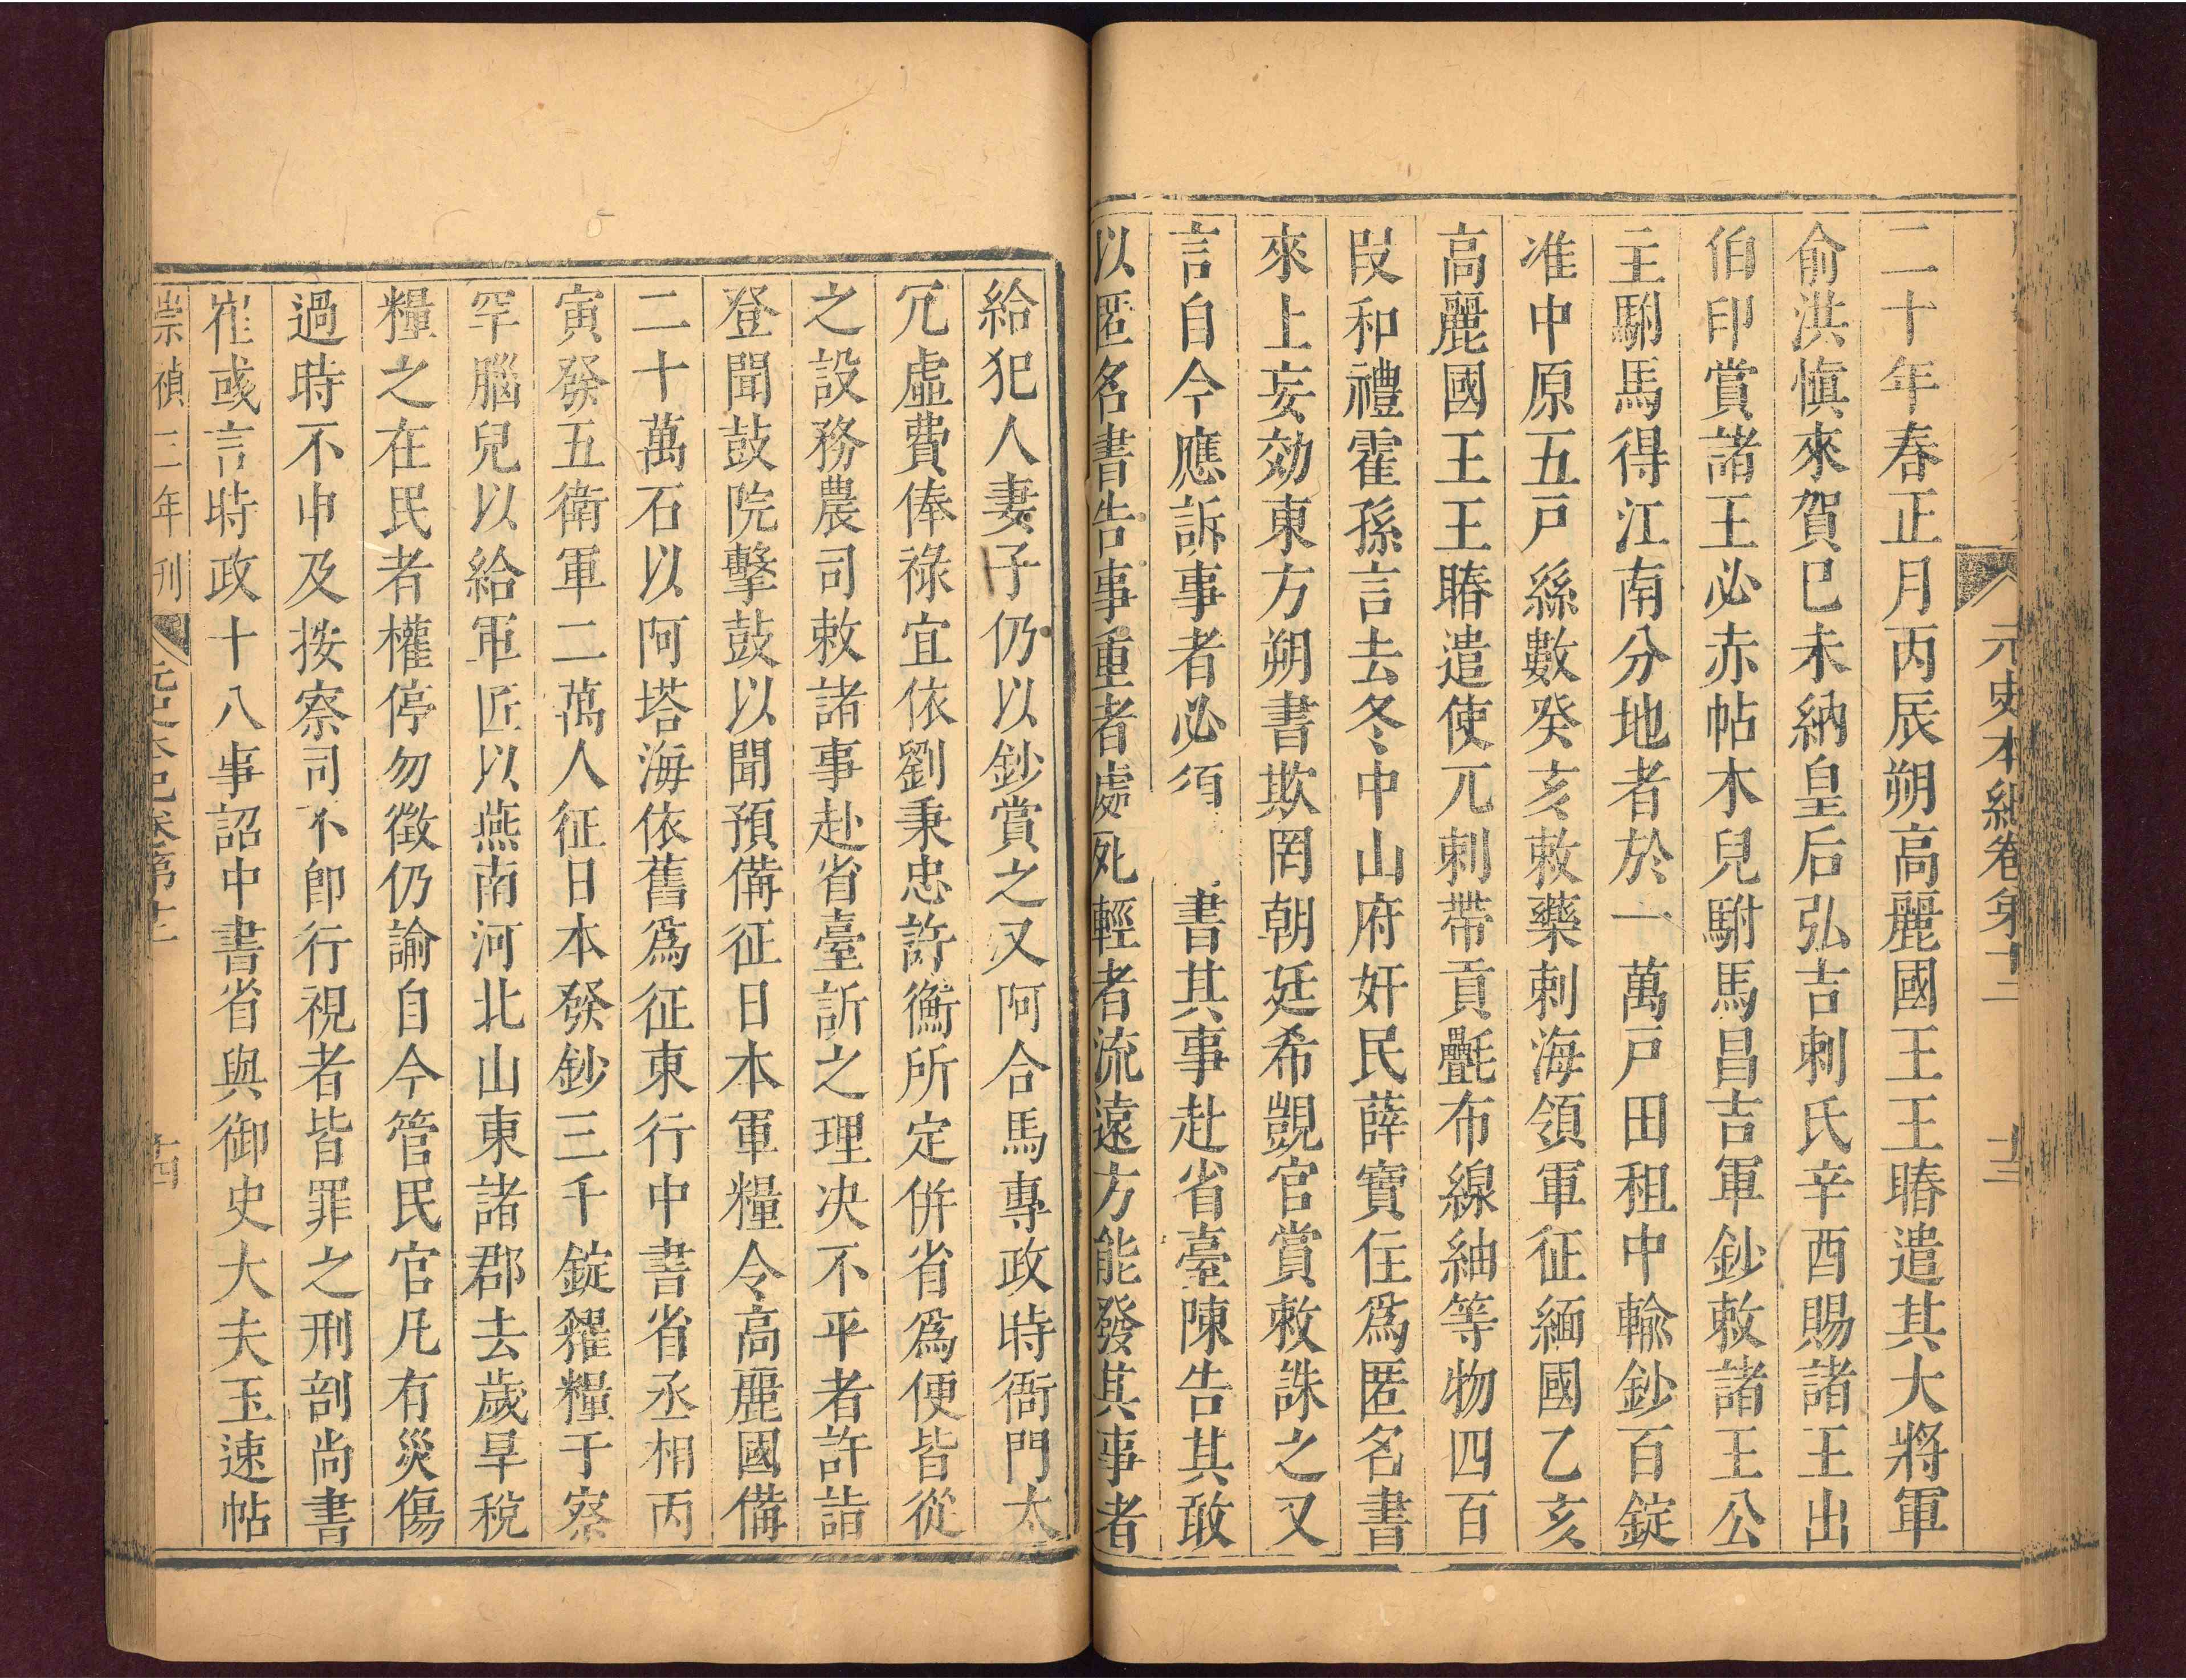 元史本紀卷第十二
十三
二十年春正月丙辰朔高麗國王王賰遣其大將軍
俞洪愼來賀巳未納皇后弘吉剌氏辛酉賜諸王出
伯印賞諸王必赤帖木兒駙馬昌吉軍鈔敕諸王公
主駙馬得江南分地者於一萬戸田租中輸鈔百錠
准中原五戸絲數癸亥敕藥剌海領軍征緬國乙亥
高麗國王王賰遣使兀剌帶貢㲲布線紬等物四百
叚和禮霍孫言去冬中山府奸民薛寶住爲匿名書
來上妄効東方朔書欺罔朝廷希覬官賞敕誅之又
言自今應訴事者必須 書其事赴省臺陳告其敢
以匿名書告事重者處死輕者流遠方能發其事者
給犯人妻子仍以鈔賞之又阿合馬專政時衙門太
冗虛費俸祿宜依劉秉忠許衡所定併省爲便皆從
之設務農司敕諸事赴省臺訴之理决不平者許詣
登聞鼓院擊鼓以聞預備征日本軍糧令高麗國備
二十萬石以阿塔海依舊爲征東行中書省丞相丙
寅發五衛軍二萬人征日本發鈔三千錠糴糧于察
罕腦兒以給軍匠以燕南河北山東諸郡去歲旱稅
糧之在民者權停勿徵仍諭自今管民官凡有災傷
過時不申及按察司不即行視者皆罪之刑部尚書
崔彧言時政十八事詔中書省與御史大夫玉速帖
崇禎三年刊
元史本紀卷第十二
十四